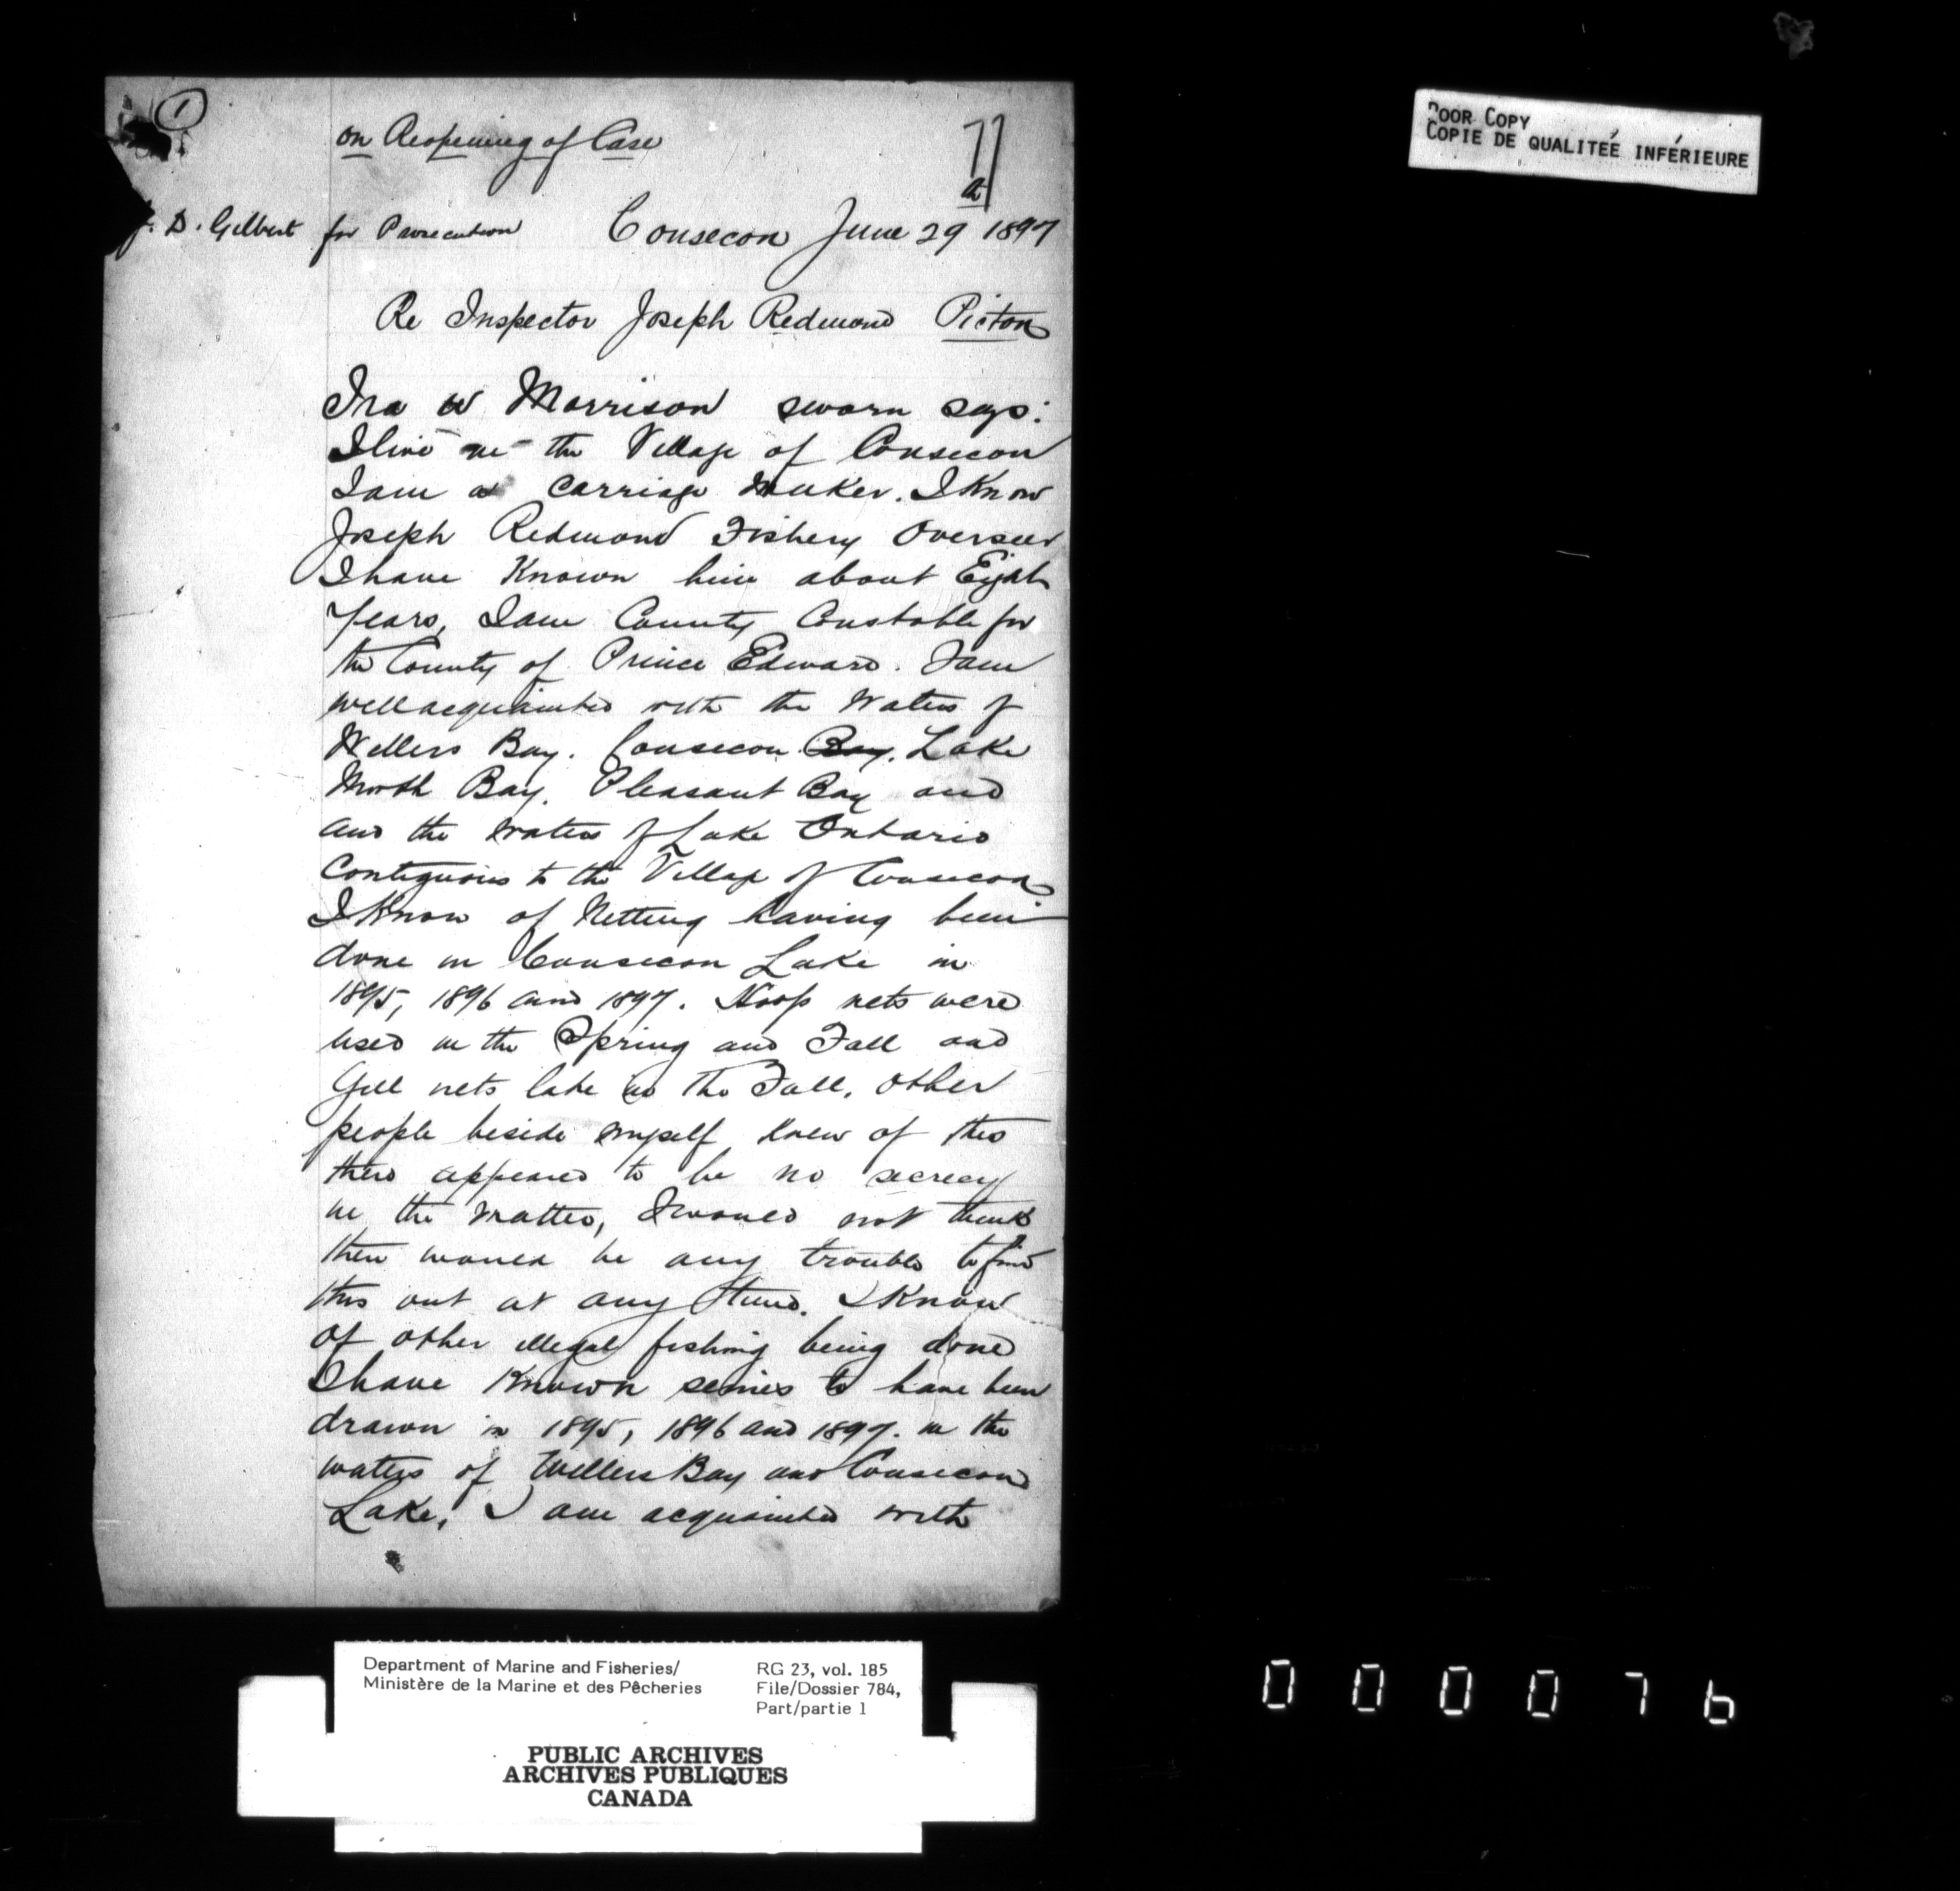 1
on Reopening of Case
71
a
J. D. Gilbert for Prosecution Consecon June 29 1897
Re Inspector Joseph Redmond Picton
Ira W Morrison sworn says:
I live in the Village of Consecon
I am a carriage maker. I Know
Joseph Redmond Fishery Overseer
I have Known him about Eight
Years, I am County Constable for
the County of Prince Edward. I am
well acquainted with the waters of
Wellers Bay. Consecon Bay. Lake
North Bay. Pleasant Bay and
and the waters of Lake Ontario
Contiguous to the Village of Consecon
I Know of Netting having been
done in Consecon Lake in
1895, 1896 and 1897. Hoop nets were
used in the Spring and Fall and
Gill nets late in the Fall. other
people beside myself knew of this
there appeared to be no secrecy
in the matter, I would not think
there would be any trouble to find
this out at any time. I Know
of other illegal fishing being done
I have Known seines to have been
drawn in 1895, 1896 and 1897. in the
waters of Wellers Bay and Consecon
Lake, I am acquainted with
POOR COPY
COPIE DE QUALITEÉ INFÉRIEURE
Department of Marine and Fisheries/
Ministère de la Marine et des Pêcheries
RG 23, vol. 185
File/Dossier 784,
Part/partie 1
PUBLIC ARCHIVES
ARCHIVES PUBLIQUES
CANADA
000076